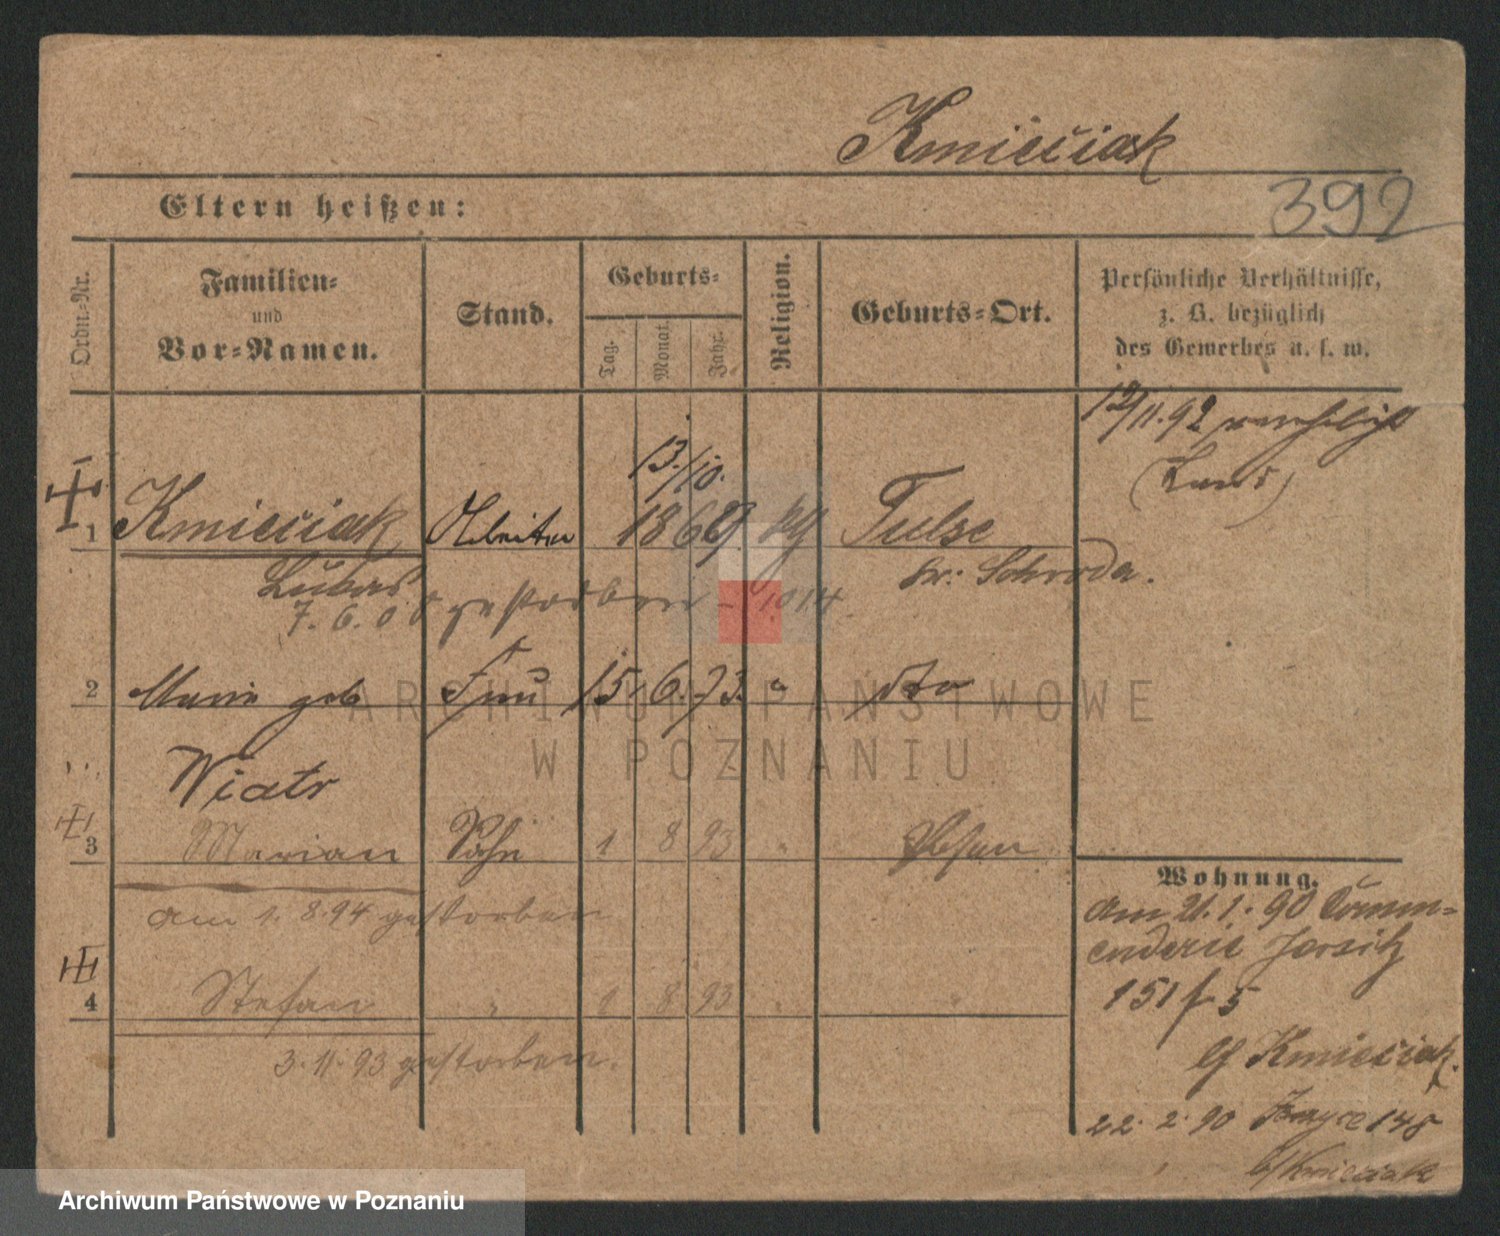 Kmieciak
392
Eltern heißen:
Ordn.-Nr.
Familien-
und
Vor-Namen.
Stand.
Geburts-
Tag.
Monat.
Jahr.
Religion.
Geburts-Ort.
Persönliche Verhältnisse,
z. B. bezüglich
des Gewerbes u. s. w.
12/11.92 verehelicht
13./10.
1 Kmieciak Arbeiter 1869 Tulse
Lukas Kr. Schroda.
gestorben
2 Marie geb Frau 15. 6. 73. " dto
Wiatr
3 Marian Sohn 1 8 93 " Posen
am 1. 8. 94 gestorben
4 Stefan " 1 8 93 " "
3. 11. 93 gestorben.
Wohnung.
am 21. 1. 90 Comm-
enderie Jersitz
151 f 5
bf Kmieciak.
22. 2. 90
b/Kmieciak
ARCHIWUM PAŃSTWOWE
W POZNANIU
Archiwum Państwowe w Poznaniu